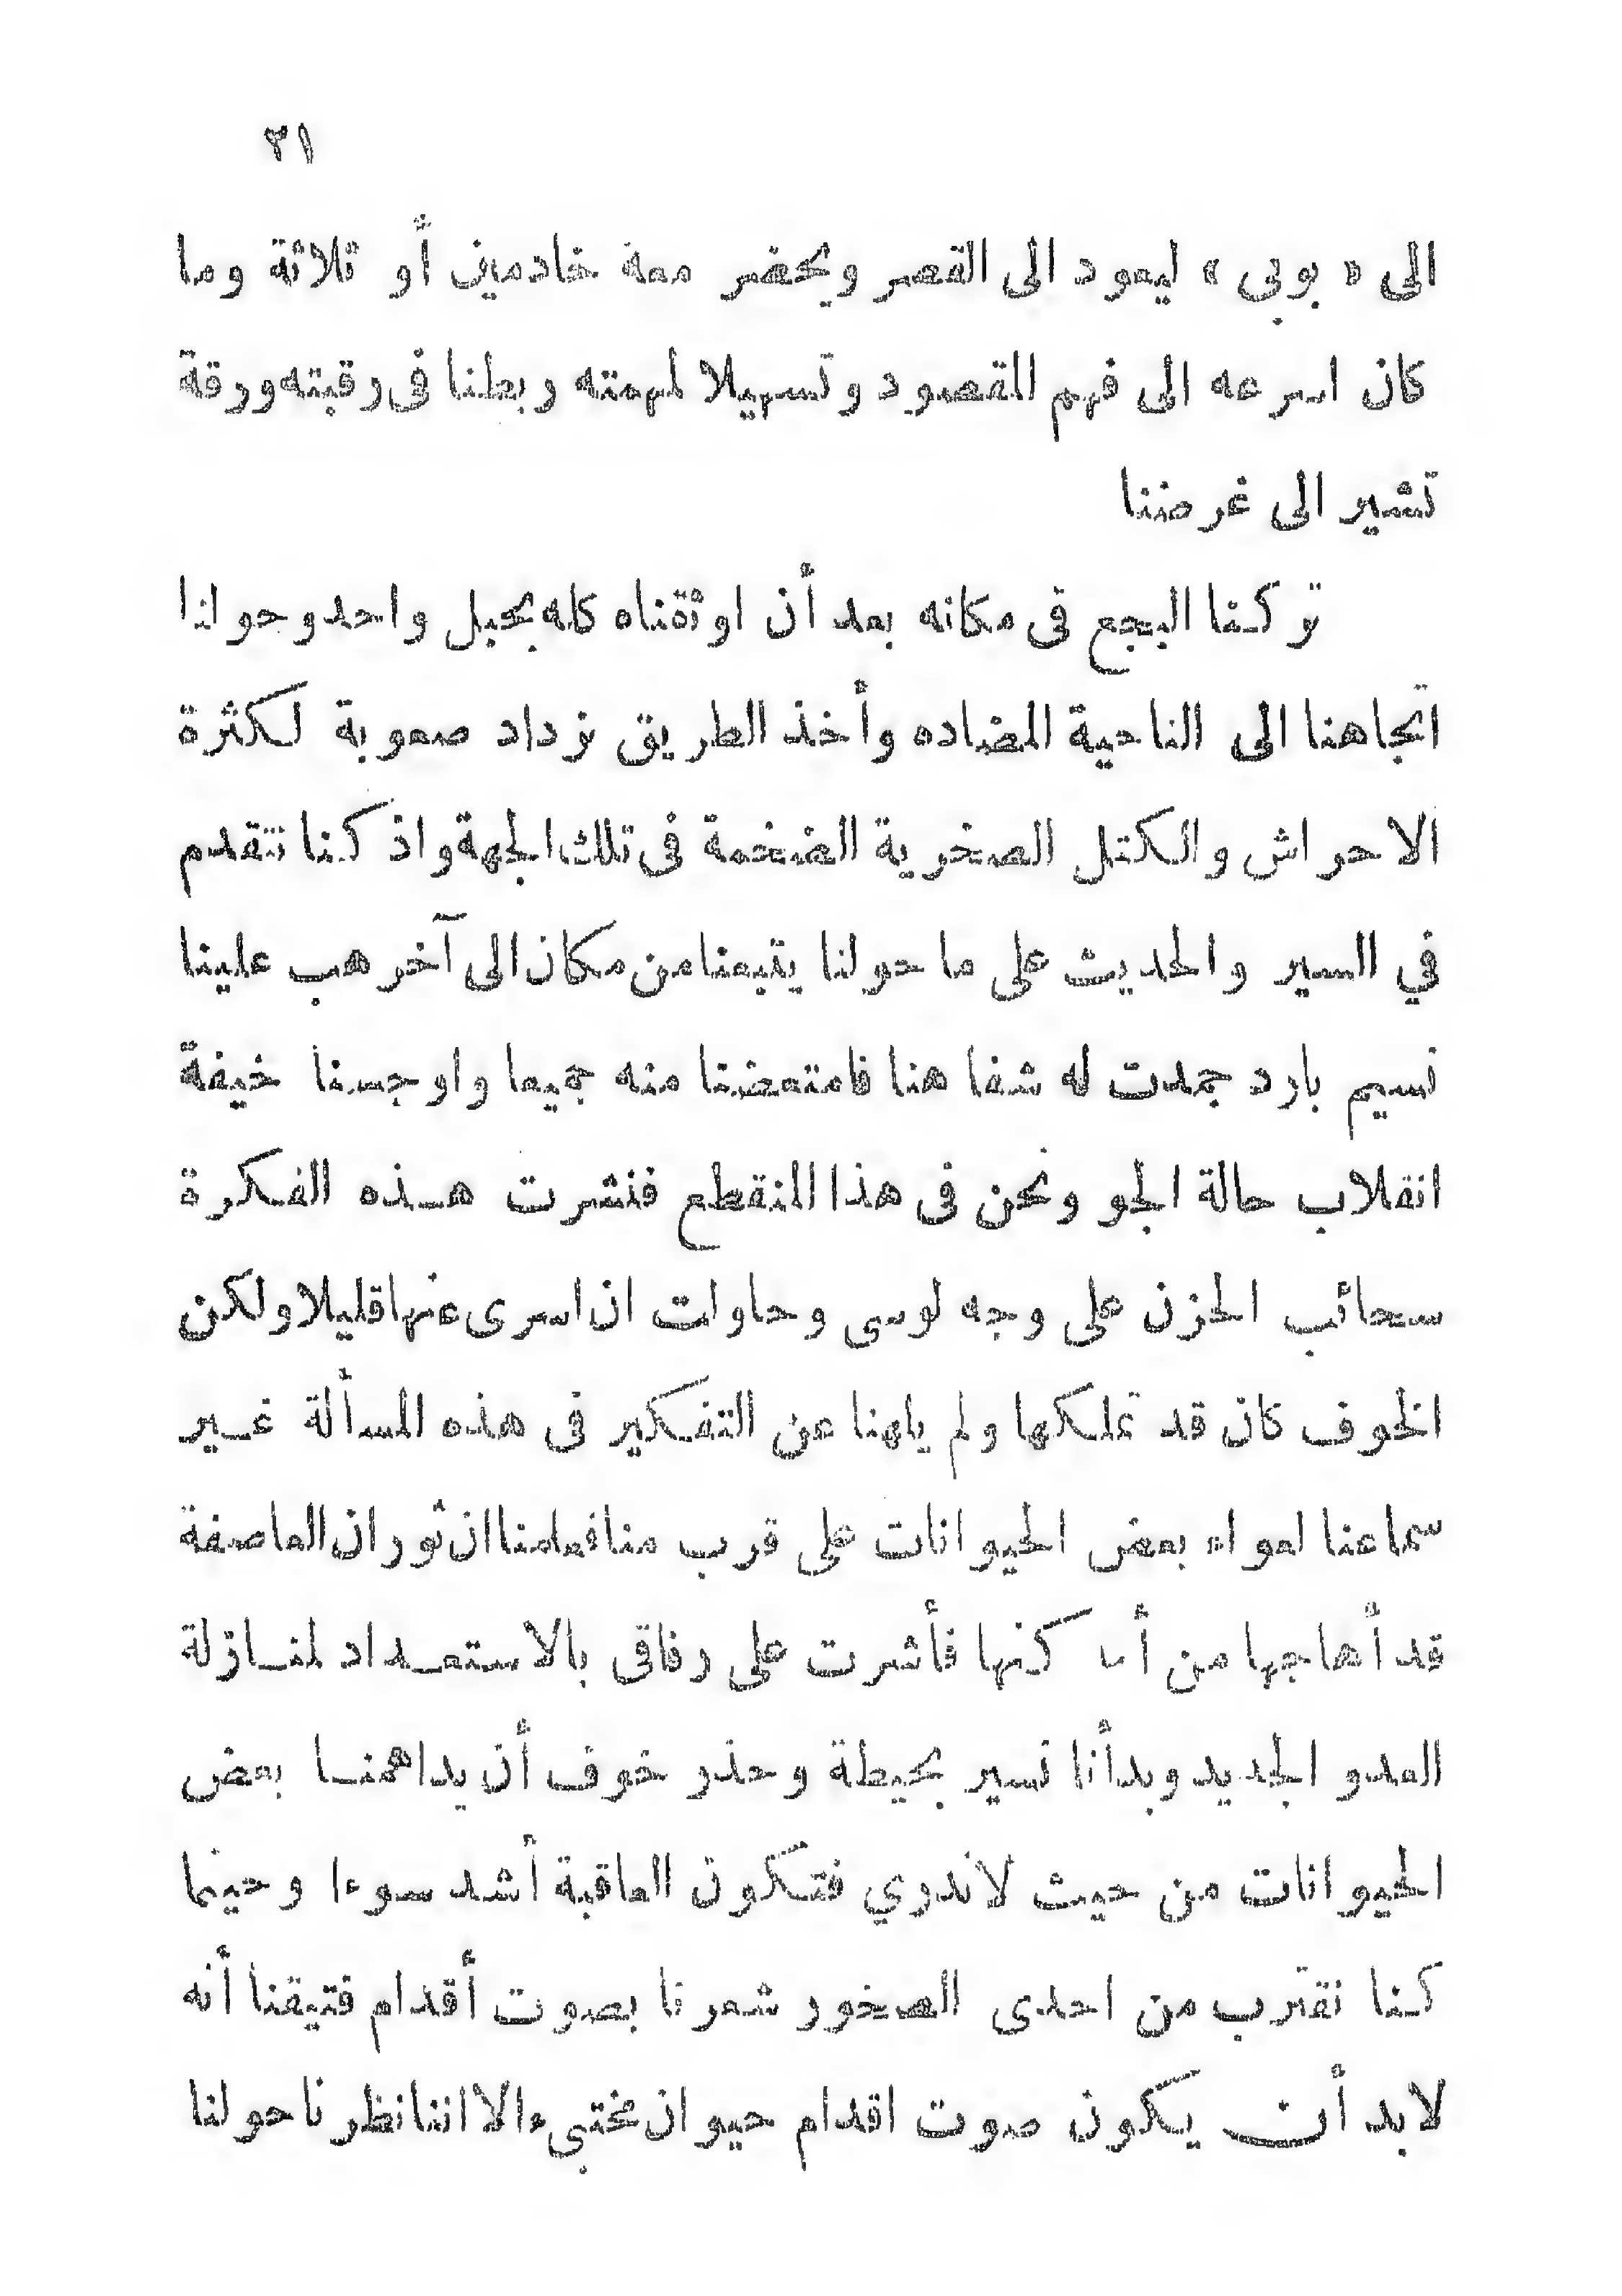 ٣١
الى « بوبى » ليعود الى القصر ويحضر معه خادمين أو ثلاثة وما
كان اسرعه الى فهم المقصود وتسهيلا لمهمته ربطنا فى رقبته ورقة
تشير الى غرضنا
تركنا البجع فى مكانه بعد أن اوثقناه كله بحبل واحد وحولنا
اتجاهنا الى الناحية المضاده وأخذ الطريق تزداد صعوبة لكثرة
الاحراش والكتل الصخرية الضخمة فى تلك الجهة واذ كنا نتقدم
في السير والحديث على ما حولنا يتبعنا من مكان الى آخر هب علينا
نسيم بارد جمدت له شفاهنا فامتعضنا منه جميعا واوجسنا خيفة
انقلاب حالة الجو ونحن فى هذا المنقطع فنشرت هذه الفكرة
سحائب الحزن على وجه لوسى وحاولت ان اسرى عنها قليلا ولكن
الخوف كان قد تملكها ولم يلهنا عن التفكير فى هذه المسألة غير
سماعنا لعواء بعض الحيوانات على قرب منا فعلمنا ان ثوران العاصفة
قد أهاجها من أما كنها فأشرت على رفاقى بالاستعداد لمنازلة
العدو الجديد وبدأنا نسير بحيطة وحذر خوف أن يداهمنا بعض
الحيوانات من حيث لاندري فتكون العاقبة أشد سوءا وحينما
كنا نقترب من احدى الصخور شعرنا بصوت أقدام فتيقنا أنه
لابد أن يكون صوت اقدام حيوان مختبىء الا اننا نظرنا حولنا